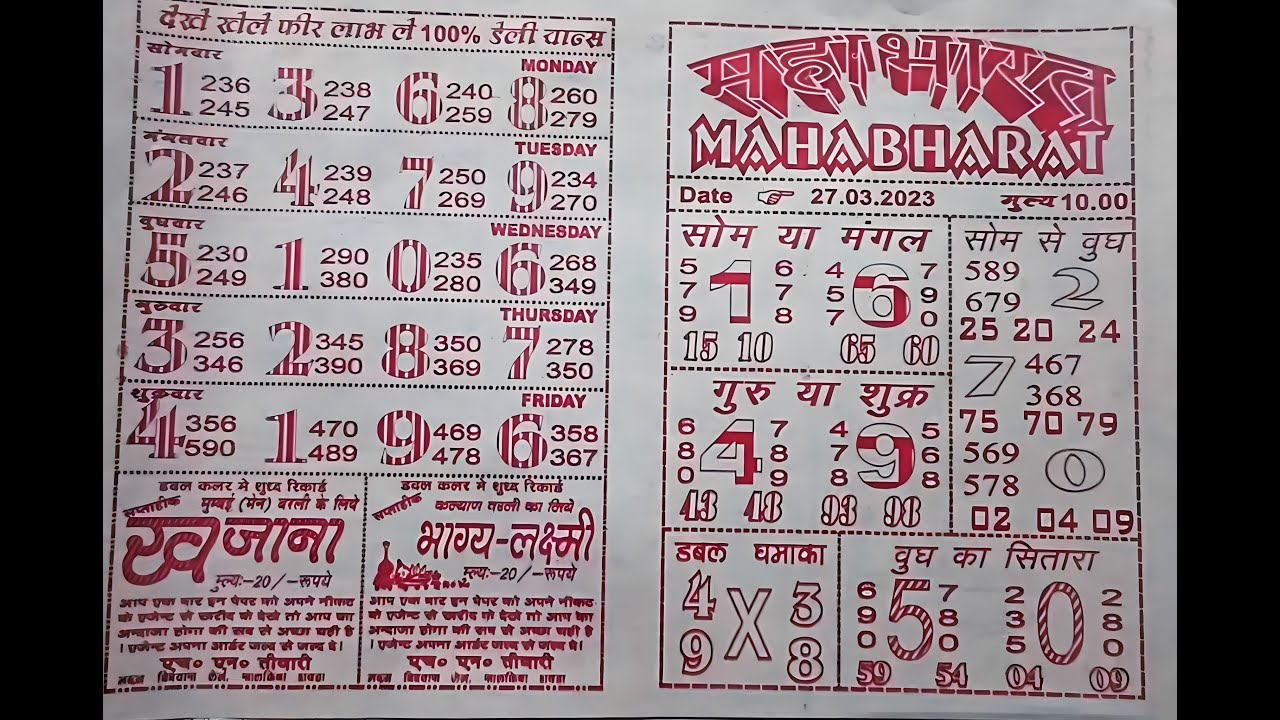 देखे खेले फीर लाभ ले 100% डेली चान्स
सोमवार MONDAY
1 236 3 238 6 240 8 260
245 247 259 279
मंगलवार TUESDAY
2 237 4 239 7 250 9 234
246 248 269 270
बुधवार WEDNESDAY
5 230 1 290 0 235 6 268
249 380 280 349
गुरुवार THURSDAY
3 256 2 345 8 350 7 278
346 390 369 350
शुक्रवार FRIDAY
4 356 1 470 9 469 6 358
590 489 478 367
डबल कलर मे शुध्द रिकार्ड
साप्ताहीक मुम्बई (मेन) वरली के लिये
खजाना
मुल्य:-20/-रूपये
आप एक बार इन पेपर को अपने नीकट
के एजेन्ट से खरीद के देखे तो आप का
अन्दाजा होगा की सब से अच्छा यही है
। एजेन्ट अपना आर्डर जल्द से जल्द दे।
एच० एन० तीवारी
डबल कलर मे शुध्द रिकार्ड
साप्ताहीक कल्याण वरली का लिये
भाग्य-लक्ष्मी
मुल्य:-20/-रूपये
आप एक बार इन पेपर को अपने नीकट
के एजेन्ट से खरीद के देखे तो आप का
अन्दाजा होगा की सब से अच्छा यही है
। एजेन्ट अपना आर्डर जल्द से जल्द दे।
एच० एन० तीवारी
महाभारत
MAHABHARAT
Date 27.03.2023 मुल्य 10.00
सोम या मंगल
5 1 6 4 6 7
7 7 5 9
9 8 7 0
15 10 65 60
गुरु या शुक्र
6 4 7 4 9 5
8 8 7 6
0 9 8 8
43 48 93 98
सोम से वुघ
589 2
679
25 20 24
7 467
368
75 70 79
569 0
578
02 04 09
डबल घमाका
4 X 3
9 8
वुघ का सितारा
6 5 7 2 0 2
9 8 3 8
0 0 5 0
59 54 04 09